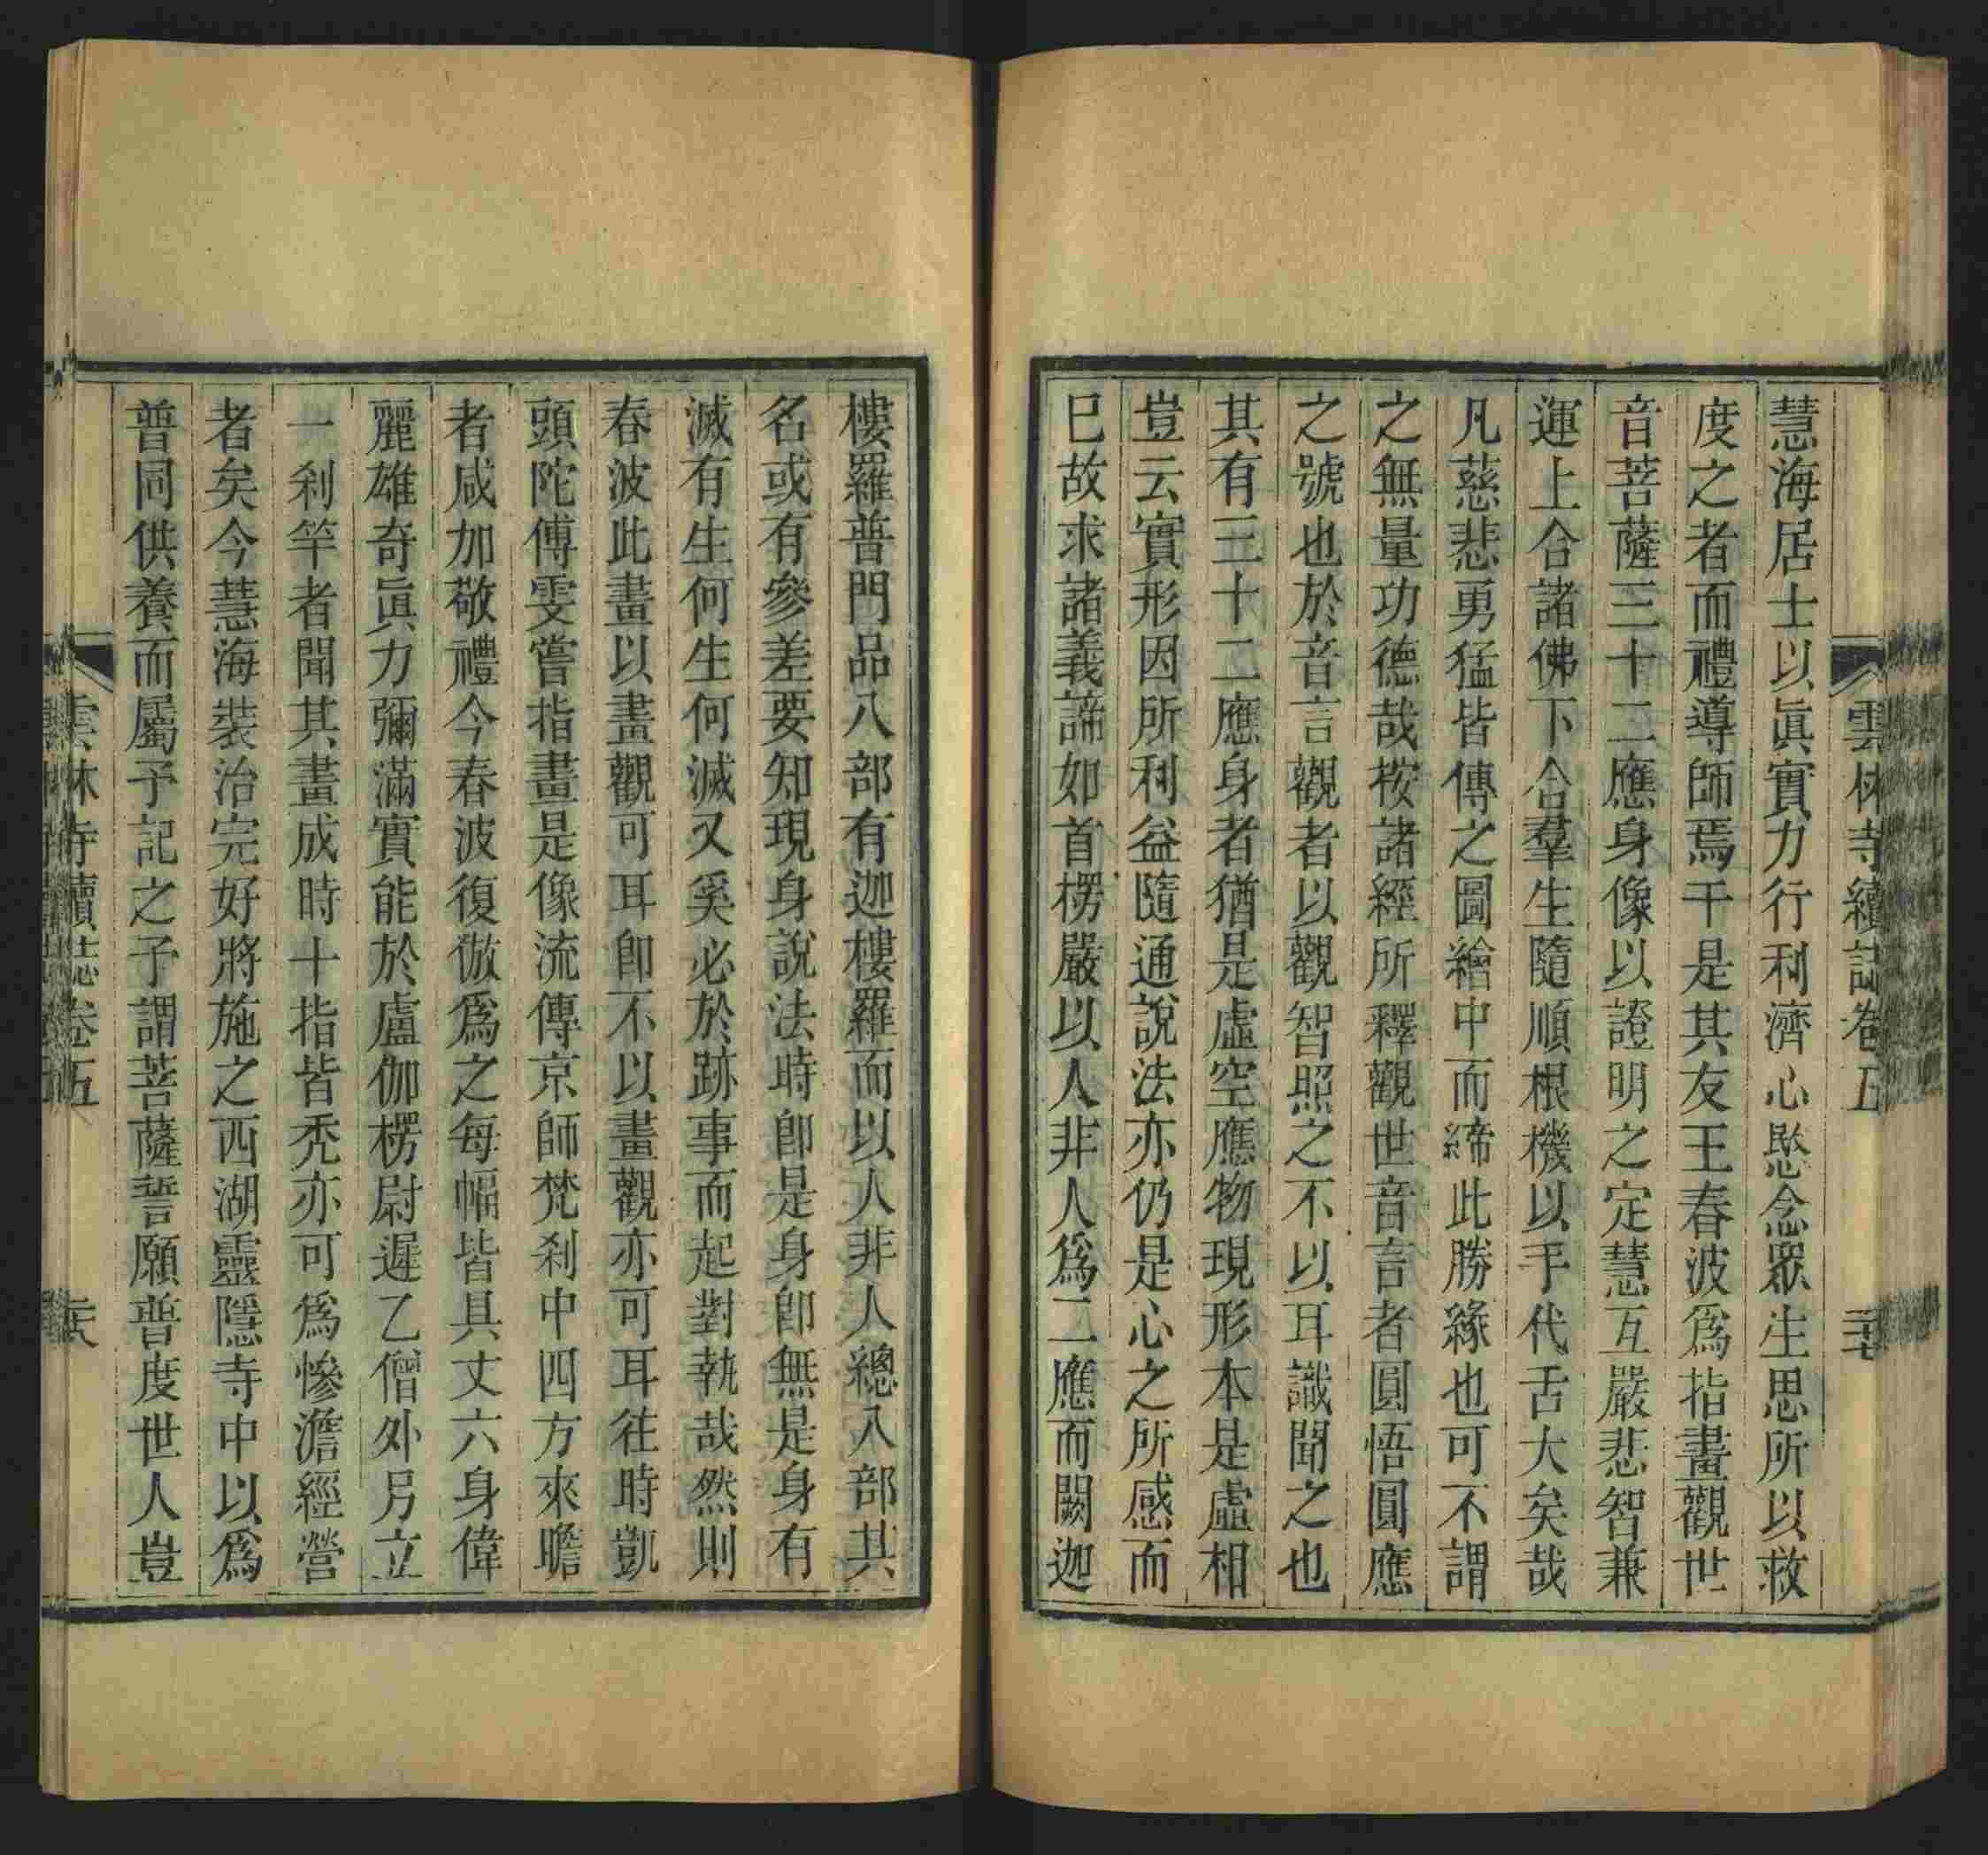 雲林寺續誌卷五
慧海居士以眞實力行利濟心愍念眾生思所以救
度之者而禮導師焉干是其友王春波爲指畫觀世
音菩薩三十二應身像以證明之定慧互嚴悲智兼
運上合諸佛下合羣生隨順根機以手代舌大矣哉
凡慈悲勇猛皆傳之圖繪中而締此勝緣也可不謂
之無量功德哉按諸經所釋觀世音言者圓悟圓應
之號也於音言觀者以觀智照之不以耳識聞之也
其有三十二應身者猶是虛空應物現形本是虛相
豈云實形因所利益隨通說法亦仍是心之所感而
巳故求諸義諦如首楞嚴以人非人爲二應而闕迦
樓羅普門品八部有迦樓羅而以人非人總入部其
名或有參差要知現身說法時卽是身卽無是身有
滅有生何生何滅又奚必於跡事而起對執哉然則
春波此畫以畫觀可耳卽不以畫觀亦可耳往時凱
頭陀傅雯嘗指畫是像流傳京師梵刹中四方來瞻
者咸加敬禮今春波復倣爲之每幅皆具丈六身偉
麗雄奇眞力彌滿實能於盧伽楞尉遲乙僧外另立
一刹竿者聞其畫成時十指皆禿亦可爲慘澹經營
者矣今慧海裝治完好將施之西湖靈隱寺中以爲
普同供養而屬予記之予謂菩薩誓願普度世人豈
雲林寺續誌卷五